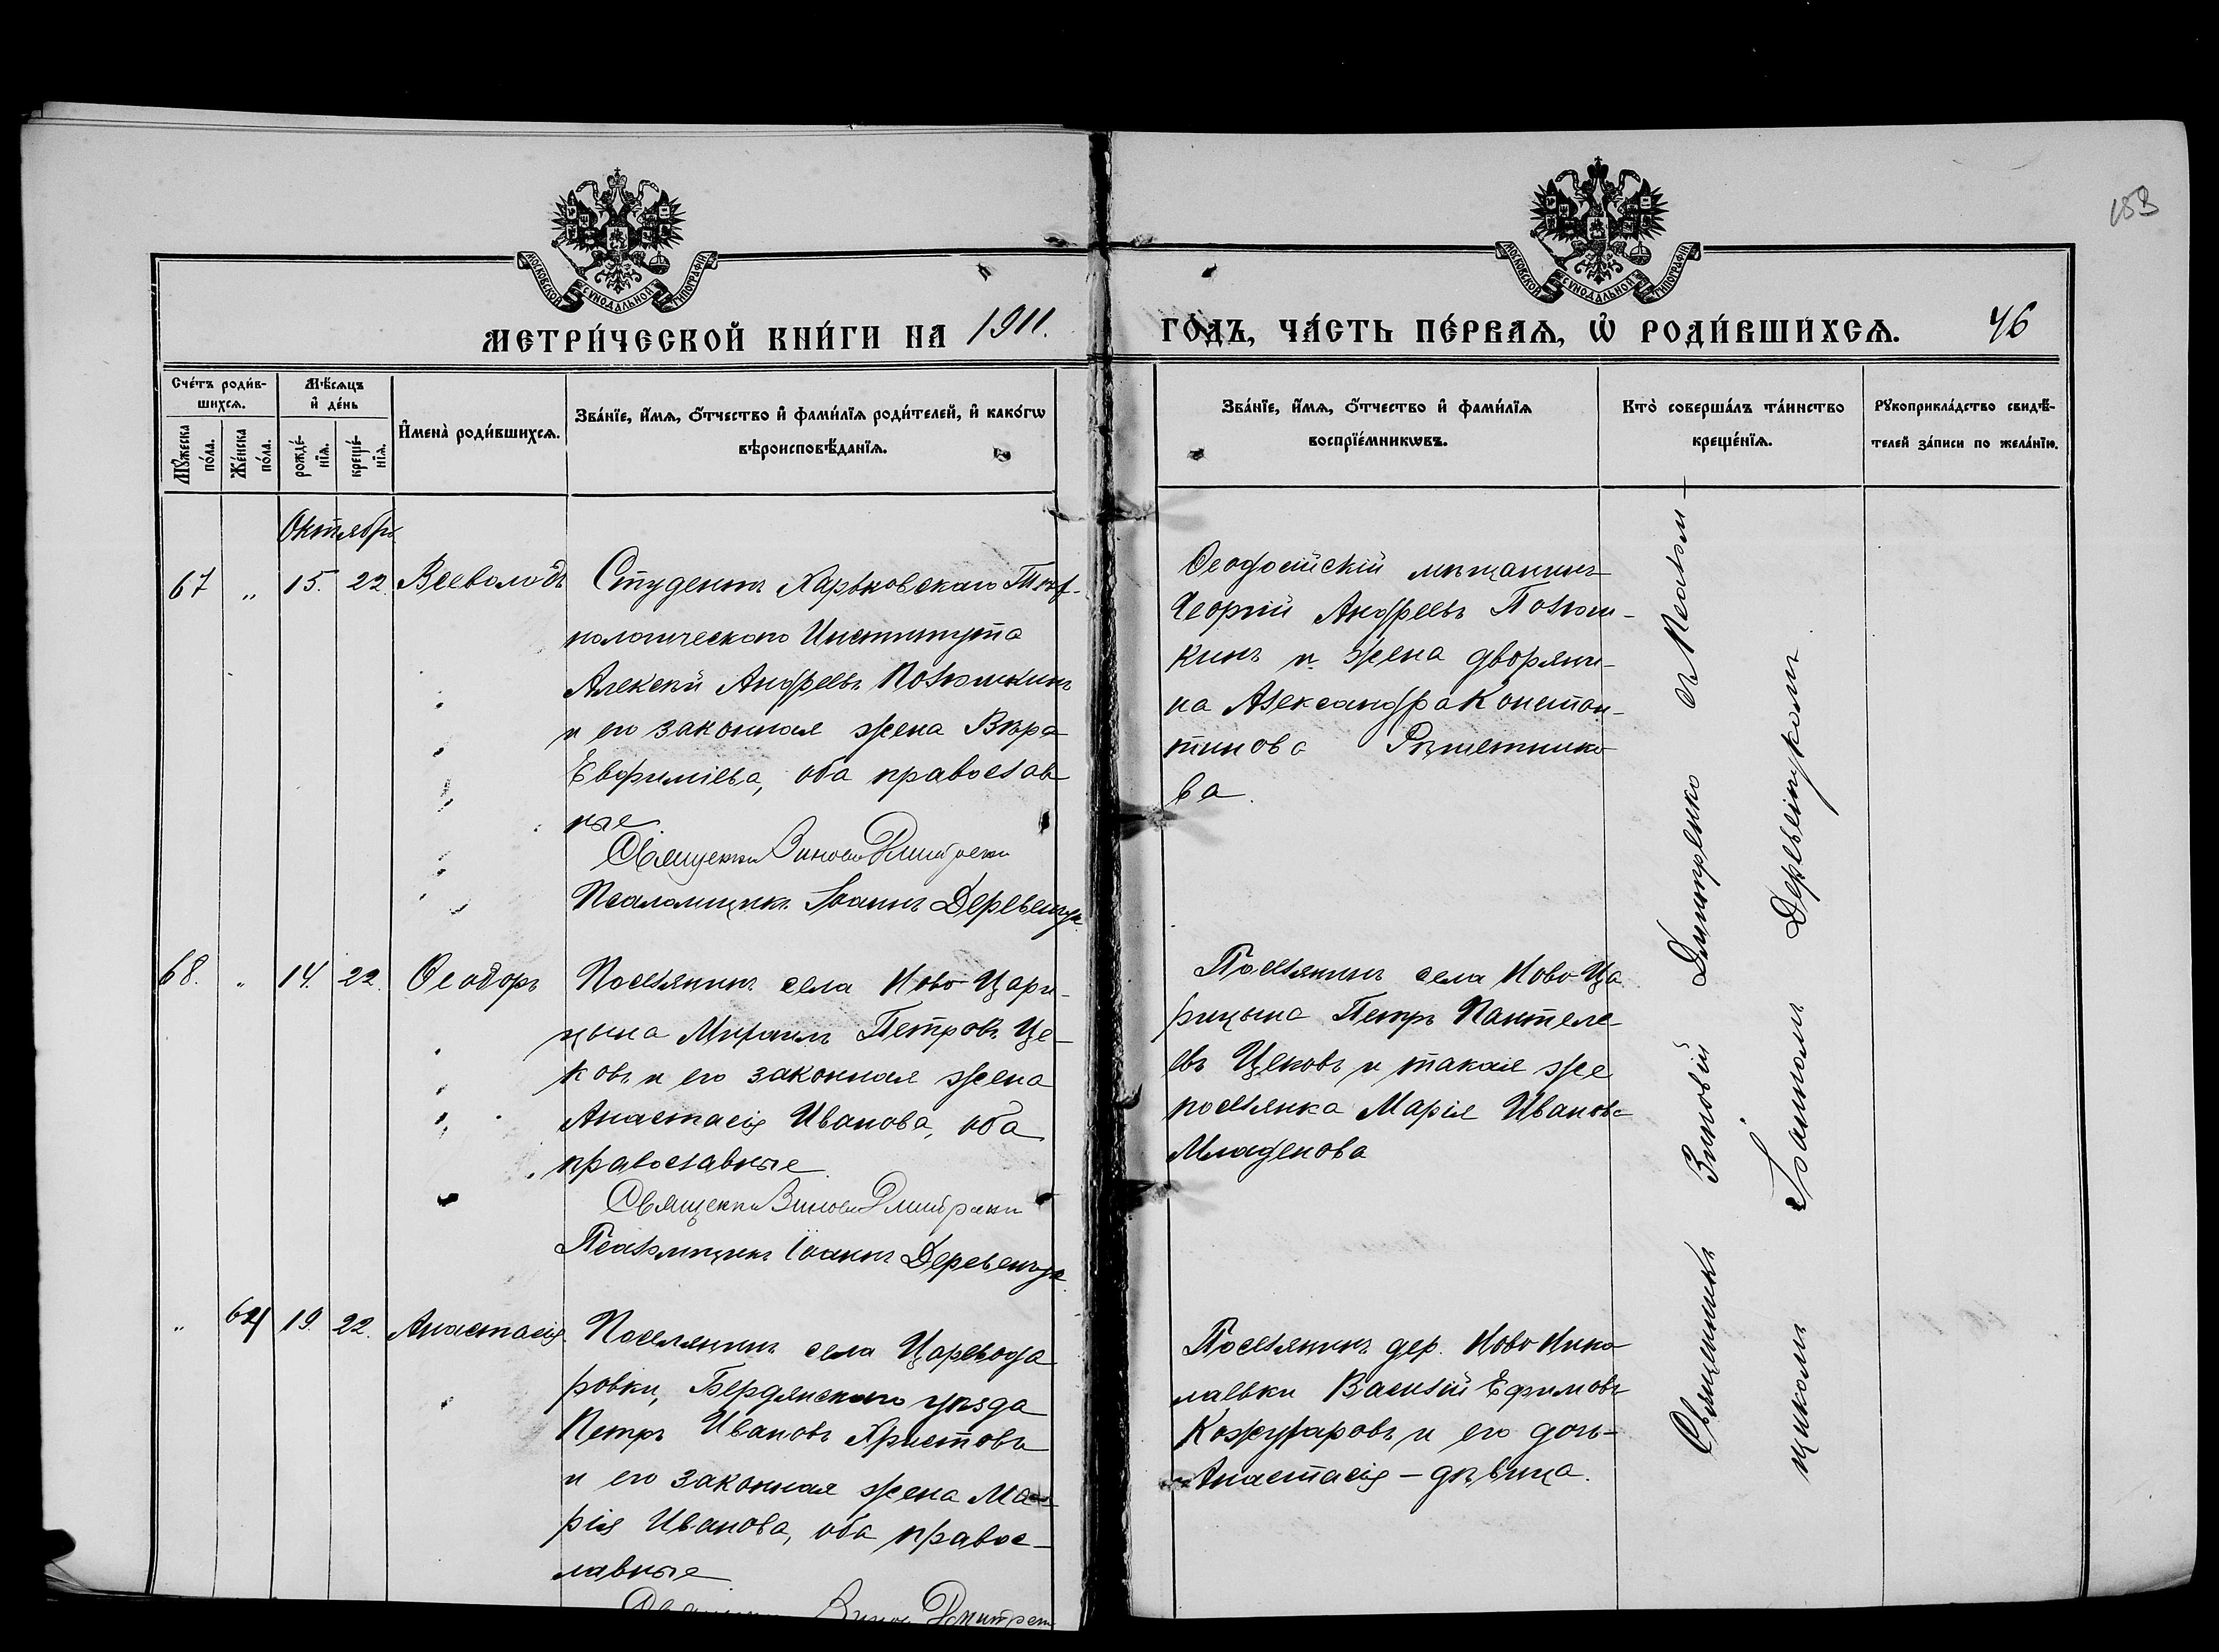 183
МОСКОВСКОЙ СѴНОДАЛЬНОЙ ТИПОГРАФІИ
МОСКОВСКОЙ СѴНОДАЛЬНОЙ ТИПОГРАФІИ
МЕТРИ́ЧЕСКОЙ КНИ́ГИ НА 1911.
ГО́ДЪ, ЧА́СТЬ ПЕ́РВАѦ, Ѡ҆ РОДИ́ВШИХСѦ. 46
Сче́тъ роди́в-
шихсѧ.
Мꙋ́жеска
по́ла.
Же́нска
по́ла.
Мѣ́сѧцъ
и҆ де́нь
рожде́-
нїѧ.
креще́-
нїѧ.
И҆мена̀ роди́вшихсѧ.
Зва́нїе, и҆́мѧ, ѻ҆́тчество и҆ фами́лїѧ роди́телей, и҆ како́гѡ
вѣроисповѣ́данїѧ.
Зва́нїе, и҆́мѧ, ѻ҆́тчество и҆ фами́лїѧ
воспрїе́мникѡвъ.
Кто̀ соверша́лъ та́инство
креще́нїѧ.
Рꙋкоприкла́дство свидѣ́-
телей за́писи по жела́нїю.
Октябрь
67 „ 15. 22. Всеволодъ
Студентъ Харьковскаго Тех-
нологическаго Института
Алексѣй Андреевъ Полюшкинъ
и его законная жена Вѣра
Евфиміева, оба православ
ные
Священникъ Зиновій Дмитренко
Псаломщикъ Іоаннъ Деревенчук
Ѳеодосійскій мѣщанинъ
Георгій Андреевъ Полюш-
кинъ и жена дворяни-
на Александра Констан-
тинова Рѣшетнико
ва.
68. „ 14. 22. Ѳеодоръ
Поселянинъ села Ново-Цари-
цына Михаилъ Петровъ Це-
ковъ и его законная жена
Анастасія Иванова, оба
православные
Священникъ Зиновій Дмитренко
Псаломщикъ Іоаннъ Деревенчук
Поселянинъ села Ново-Ца
рицына Петръ Пантеле-
евъ Цековъ и такая же
поселянка Марія Иванова
Младенова
„ 64 19. 22. Анастасія
Поселянинъ села Царевода
ровки, Бердянскаго уѣзда
Петръ Ивановъ Христовъ
и его законная жена Ма-
рія Иванова, оба правос-
лавные
Зинов Дмитрен
Поселянинъ дер. Ново Нико
лаевки Василій Ефимовъ
Кожухаровъ и его дочь-
Анастасія – дѣвица.
Священникъ Зиновій Дмитренко съ Псалом-
щикомъ Іоанномъ Деревенчукомъ